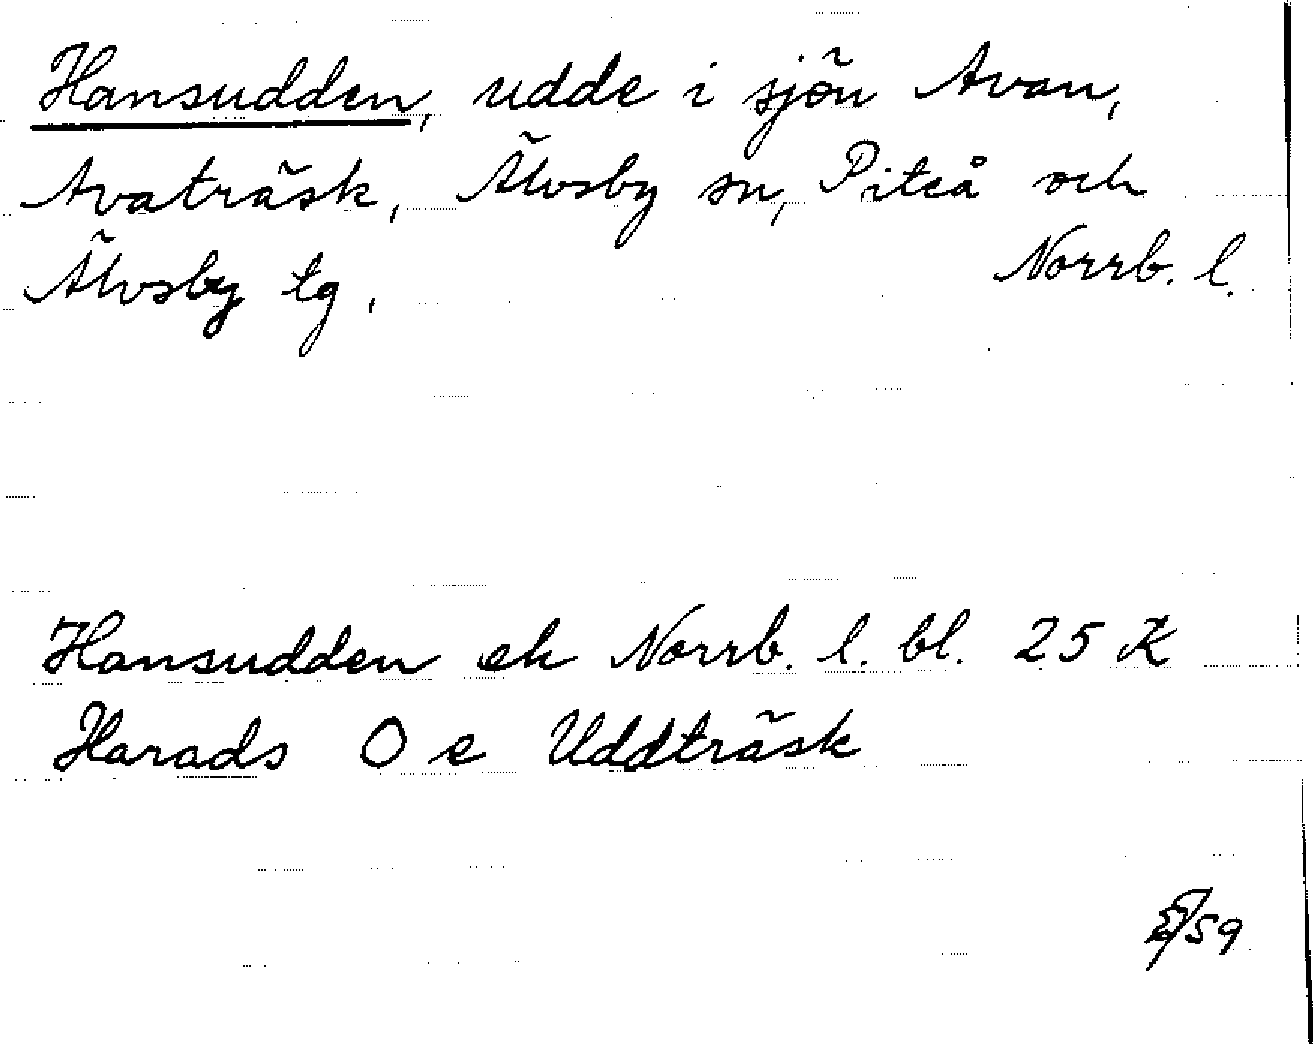 Hansudden, udde i sjön Avan,
Avaträsk, Älvsby sn, Piteå och
Älvsby tg, Norrb. l.
Hansudden ek Norrb. l. bl. 25 K
Harads O e Uddträsk
/59